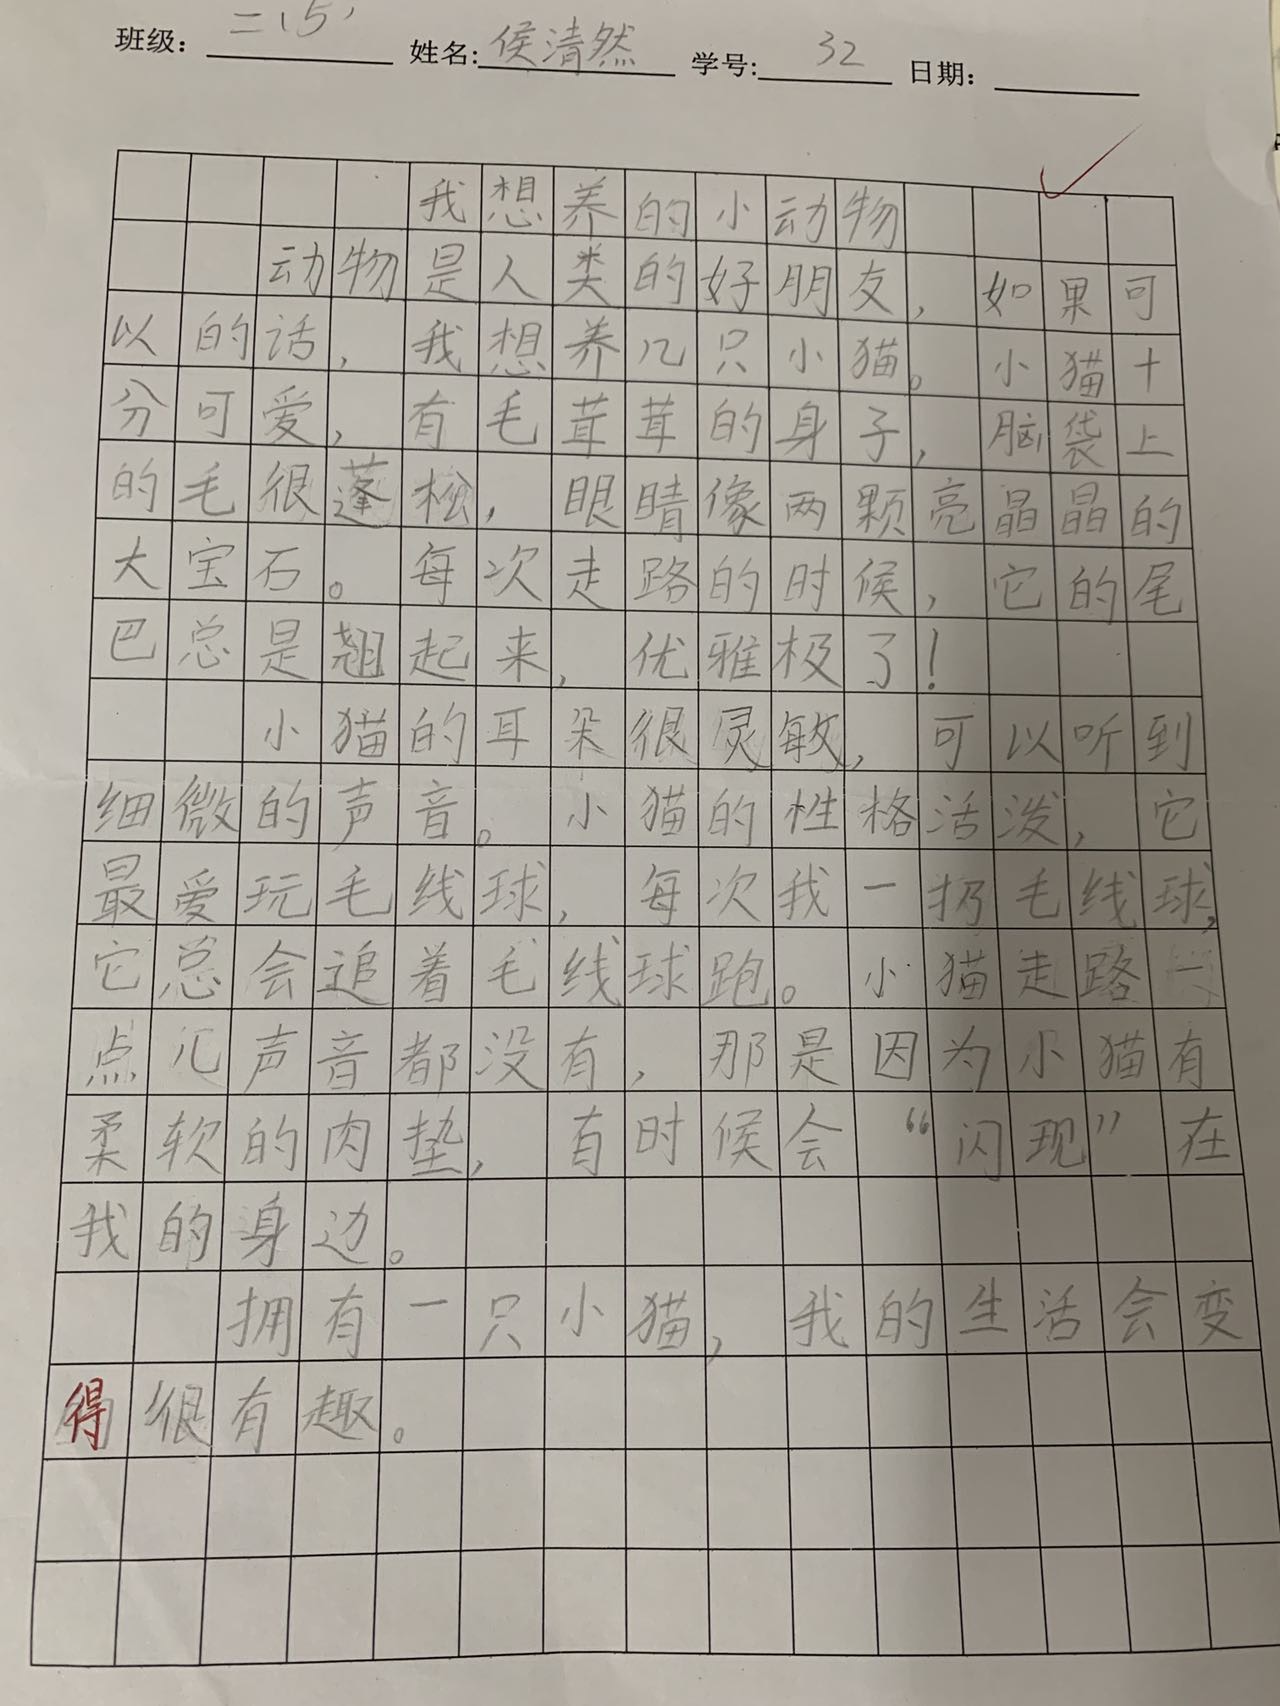 班级：二（5） 姓名：侯清然 学号：32 日期：
我想养的小动物
动物是人类的好朋友，如果可
以的话，我想养几只小猫。小猫十
分可爱，有毛茸茸的身子，脑袋上
的毛很蓬松，眼睛像两颗亮晶晶的
大宝石。每次走路的时候，它的尾
巴总是翘起来，优雅极了！
小猫的耳朵很灵敏，可以听到
细微的声音。小猫的性格活泼，它
最爱玩毛线球，每次我一扔毛线球，
它总会追着毛线球跑。小猫走路一
点儿声音都没有，那是因为小猫有
柔软的肉垫，有时候会“闪现”在
我的身边。
拥有一只小猫，我的生活会变
得很有趣。